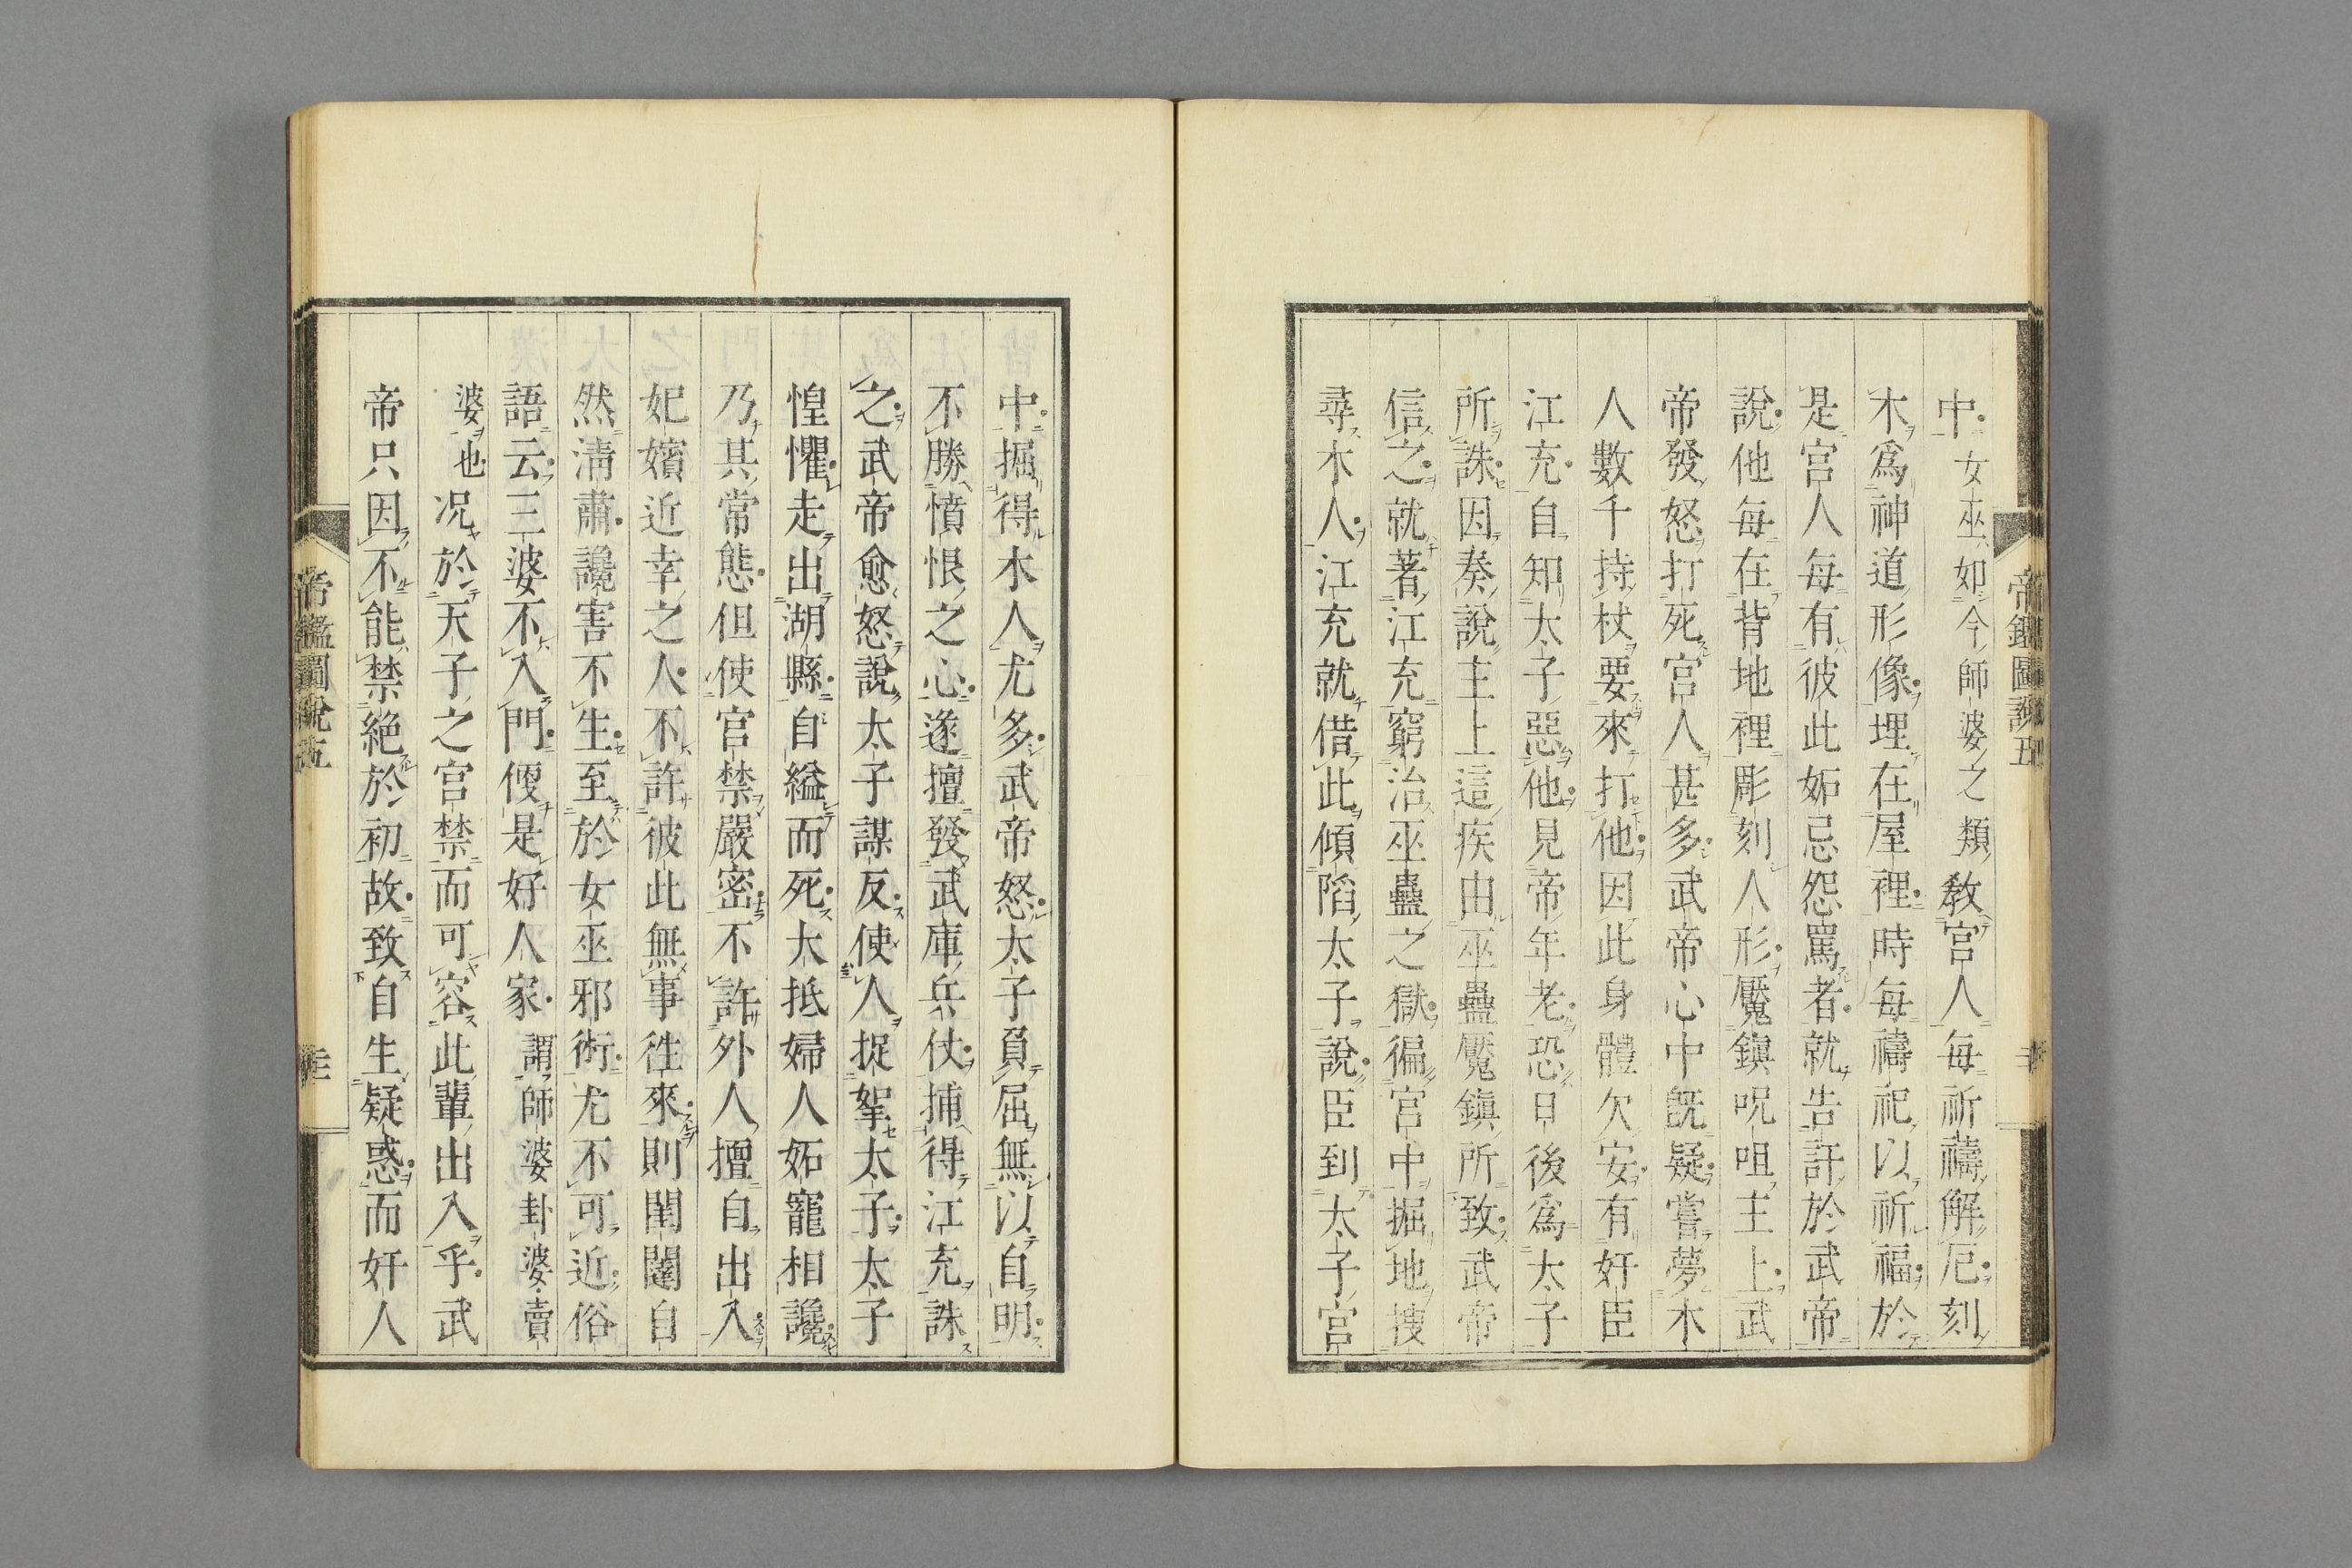 帝鑑圖說五
中女巫如今師婆之類教宮人每祈禱解厄刻
木爲神道形像埋在屋裡時每禱祀以祈福於
是宮人每有彼此妬忌怨罵者就告訐於武帝
說他每在背地裡彫刻人形魘鎮呪咀主上武
帝發怒打死宮人甚多武帝心中既疑嘗夢木
人數千持杖要來打他因此身體欠安有奸臣
江充自知太子惡他見帝年老恐日後爲太子
所誅因奏說主上這疾由巫蠱魘鎮所致武帝
信之就著江充窮治巫蠱之獄徧宮中掘地搜
尋木人江充就借此傾陷太子說臣到太子宮
中掘得木人尤多武帝怒太子負屈無以自明
不勝憤恨之心遂擅發武庫兵仗捕得江充誅
之武帝愈怒說太子謀反使人捉拏太子太子
惶懼走出湖縣自縊而死大抵婦人妬寵相讒
乃其常態但使宮禁嚴密不許外人擅自出入
妃嬪近幸之人不許彼此無事徃來則闈闥自
然淸肅讒害不生至於女巫邪術尤不可近俗
語云三婆不入門便是好人家謂師婆卦婆賣
婆也况於天子之宮禁而可容此輩出入乎武
帝只因不能禁絕於初故致自生疑惑而奸人
帝鑑圖說五